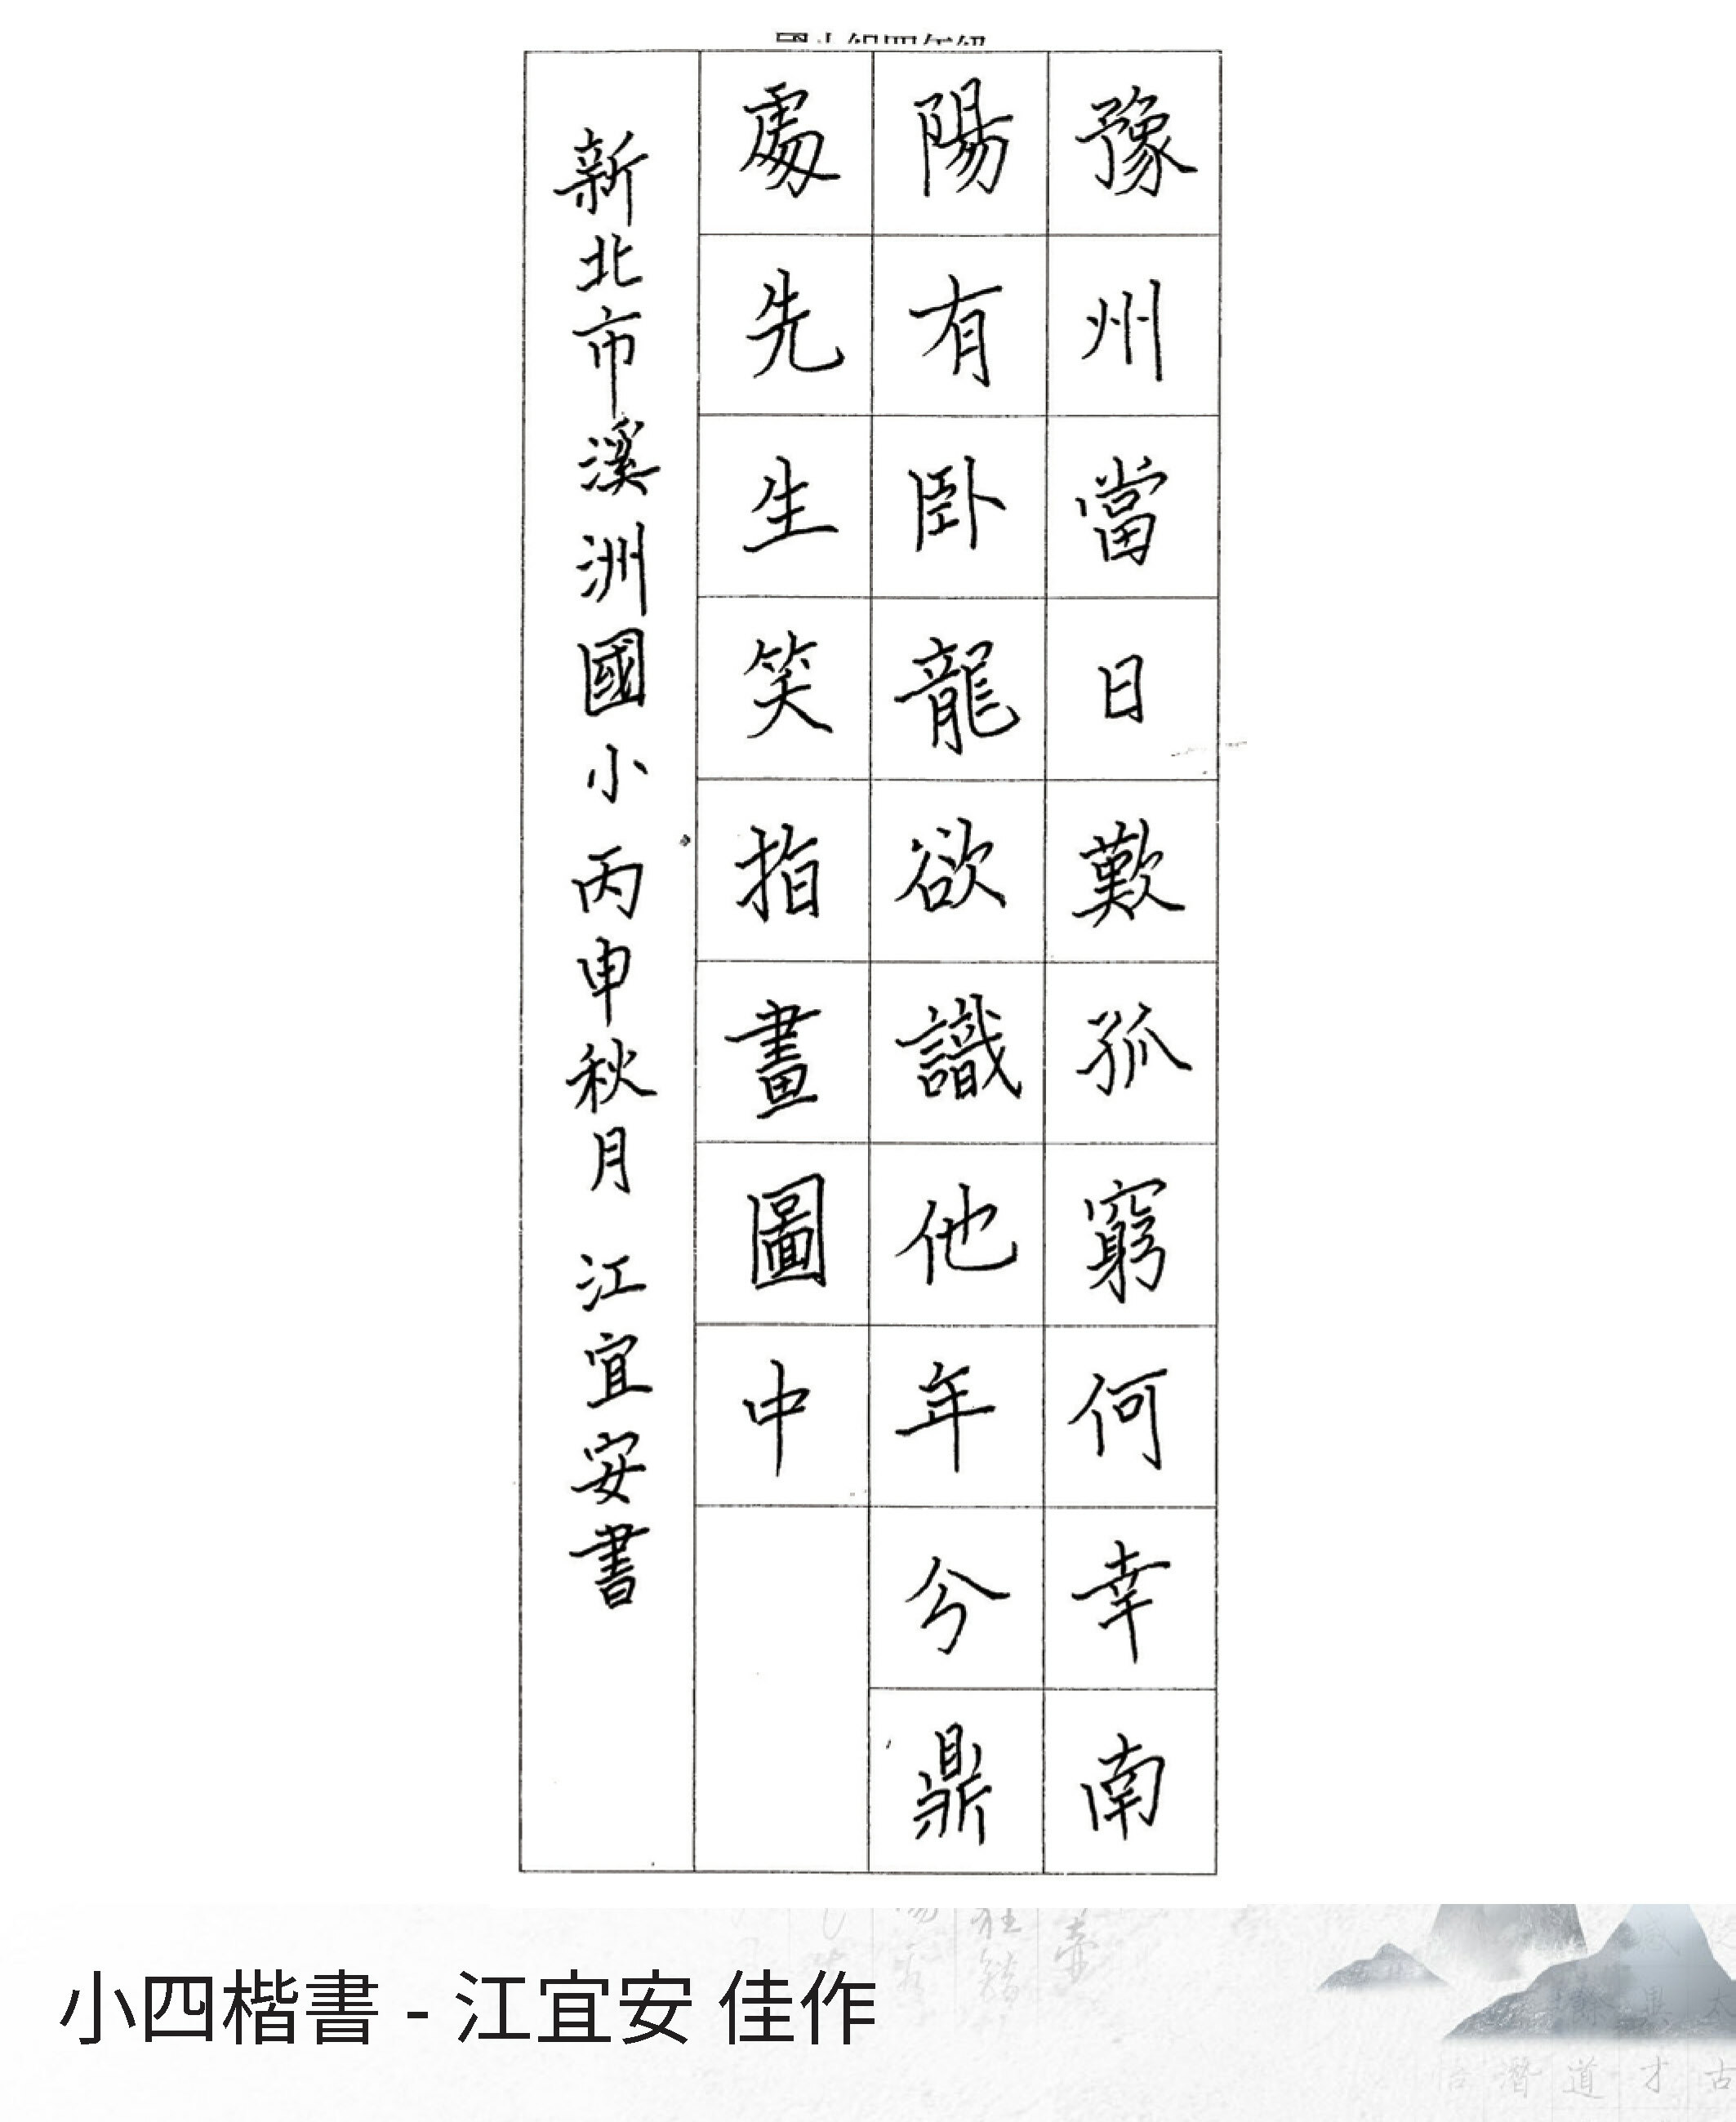 豫州當日歎孤窮何幸南
陽有臥龍欲識他年分鼎
處先生笑指畫圖中
新北市溪洲國小 丙申秋月 江宜安書
小四楷書 - 江宜安 佳作